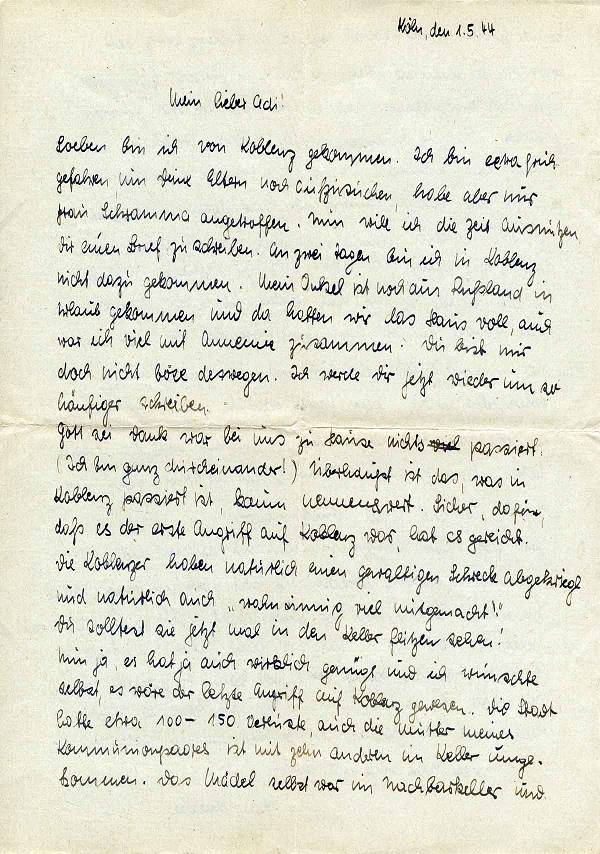 Köln, den 1.5.44
Mein lieber Adi!
Soeben bin ich von Koblenz gekommen. Ich bin extra früh
gefahren um Deine Eltern noch aufzusuchen, habe aber nur
Frau Schramma angetroffen. Nun will ich die Zeit ausnützen
Dir einen Brief zu schreiben. An zwei Tagen bin ich in Koblenz
nicht dazu gekommen. Mein Onkel ist noch aus Rußland in
Urlaub gekommen und da hatten wir das Haus voll, auch
war ich viel mit Annemie zusammen. Du bist mir
doch nicht böse deswegen. Ich werde Dir jetzt wieder um so
häufiger schreiben.
Gott sei Dank war bei uns zu Hause nichts viel passiert.
(Ich bin ganz durcheinander!) Überhaupt ist das, was in
Koblenz passiert ist, kaum nennenswert. Sicher, dafür,
daß es der erste Angriff auf Koblenz war, hat es gereicht.
Die Koblenzer haben natürlich einen gewaltigen Schreck abgekriegt
und natürlich auch „wahnsinnig viel mitgemacht!"
Du solltest sie jetzt mal in den Keller flitzen sehen!
Nun ja, es hat ja auch wirklich genügt und ich wünschte
selbst, es wäre der letzte Angriff auf Koblenz gewesen. Die Stadt
hatte etwa 100–150 Verluste, auch die Mutter meines
Kommunionpaares ist mit zehn anderen im Keller umge-
kommen. Das Mädel selbst war im Nachbarkeller und